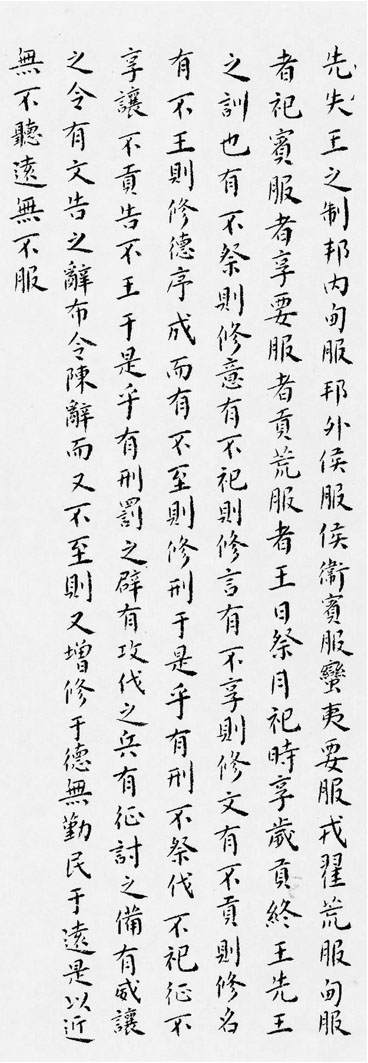 先失王之制邦内甸服邦外侯服侯衛賓服蠻夷要服戎翟荒服甸服
者祀賓服者享要服者貢荒服者王日祭月祀時享歲貢終王先王
之訓也有不祭則修意有不祀則修言有不享則修文有不貢則修名
有不王則修德序成而有不至則修刑于是乎有刑不祭伐不祀征不
享讓不貢告不王于是乎有刑罰之辟有攻伐之兵有征討之備有威讓
之令有文告之辭布令陳辭而又不至則又增修于德無勤民于遠是以近
無不聽遠無不服